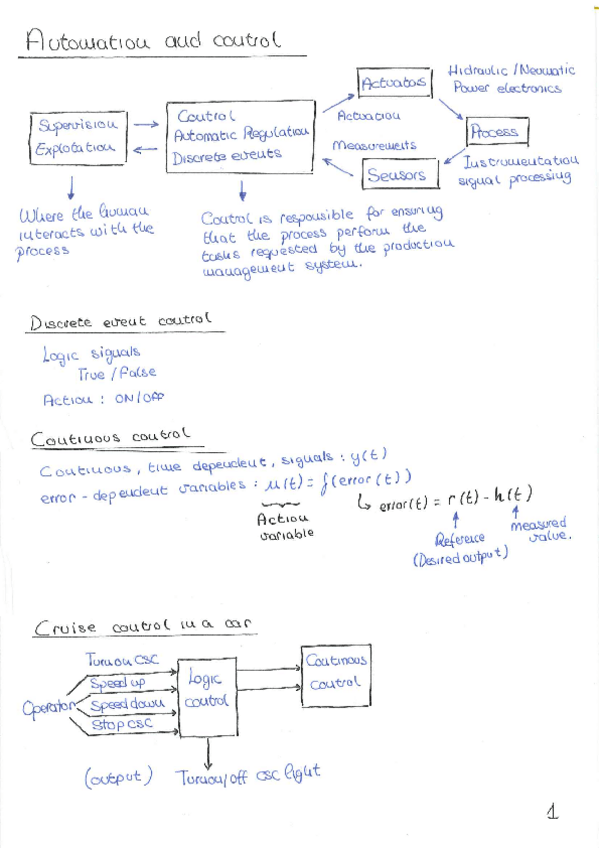 Automation and control
Actuators
Hidraulic / Neumatic
Power electronics
Supervision
Explotation
Control
Automatic Regulation
Discrete events
Actuation
Measurements
Process
Sensors
Instrumentation
signal processing
Where the human
interacts with the
process
Control is responsible for ensuring
that the process perform the
tasks requested by the production
management system.
Discrete event control
Logic signals
True / False
Action : ON/OFF
Continuous control
Continuous, time dependent, signals : y(t)
error - dependent variables : u(t) = f(error(t))
↳ error(t) = r(t) - h(t)
Action
variable
Reference
(Desired output)
measured
value.
Cruise control in a car
Turn on CSC
Speed up
Operator
Speed down
Stop CSC
Logic
control
Continous
control
(output) Turn on/off CSC light
1